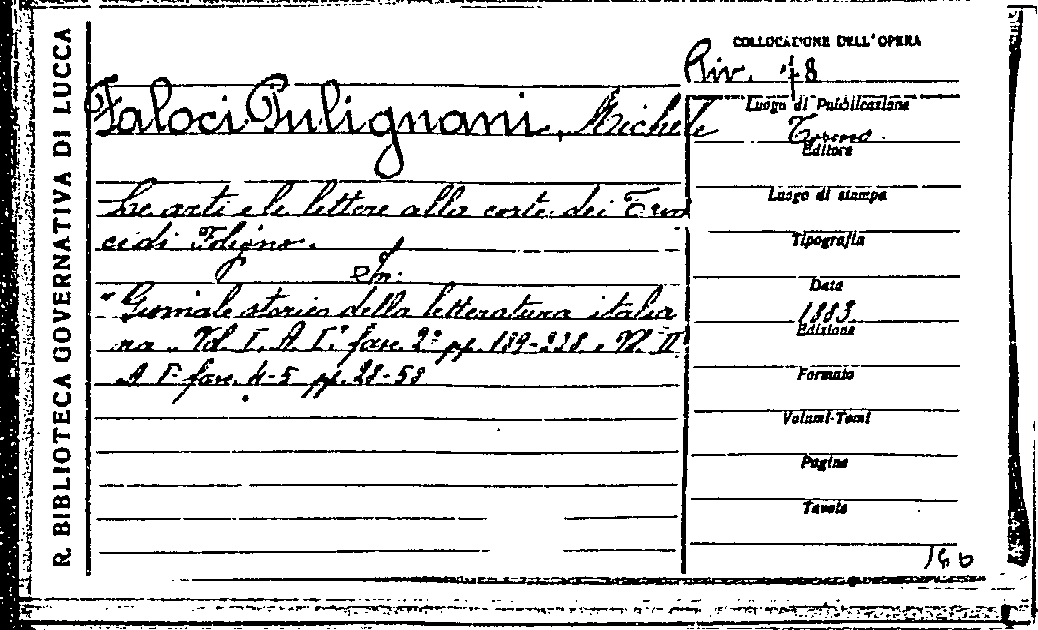 R. BIBLIOTECA GOVERNATIVA DI LUCCA
COLLOCAZIONE DELL'OPERA
Riv. 78
Faloci Pulignani, Michele
Luogo di Pubblicazione
Torino
Editore
Le arti e le lettere alla corte dei Trin
Luogo di stampa
ci di Foligno.
Tipografia
In:
Data
"Giornale storico della letteratura italia
1883
Edizione
na". Vol. I. A. I.° fasc. 2° pp. 189-238. Vol. II
A I. fasc. 4-5 pp. 28-58
Formato
Volumi-Tomi
Pagine
Tavole